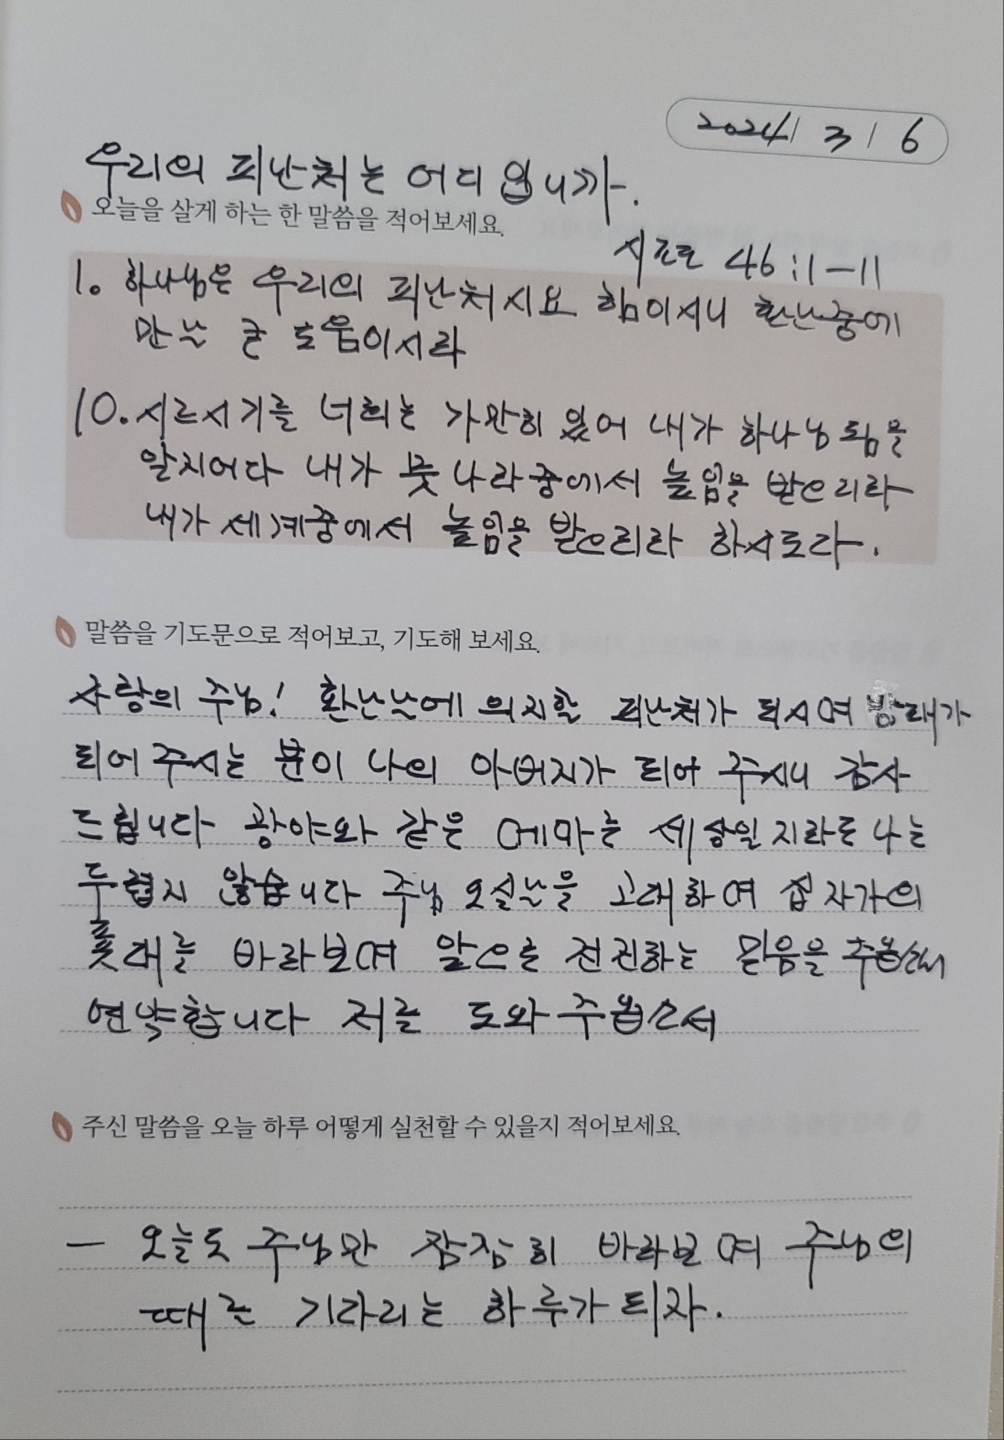 2024 / 3 / 6
우리의 피난처는 어디 입니까.
오늘을 살게 하는 한 말씀을 적어보세요.
시편 46:1-11
1. 하나님은 우리의 피난처시요 힘이시니 환난중에
만날 큰 도움이시라
10. 이르시기를 너희는 가만히 있어 내가 하나님 됨을
알지어다 내가 뭇 나라중에서 높임을 받으리라
내가 세계중에서 높임을 받으리라 하시도다.
말씀을 기도문으로 적어보고, 기도해 보세요.
사랑의 주님! 환난날에 의지할 피난처가 되시며 방패가
되어 주시는 분이 나의 아버지가 되어 주시니 감사
드립니다 광야와 같은 메마른 세상일지라도 나는
두렵지 않습니다 주님 오실날을 고대하며 십자가의
푯대를 바라보며 앞으로 전진하는 믿음을 주옵소서
연약합니다 저를 도와 주옵소서
주신 말씀을 오늘 하루 어떻게 실천할 수 있을지 적어보세요.
- 오늘도 주님만 잠잠히 바라보며 주님의
때를 기다리는 하루가 되자.